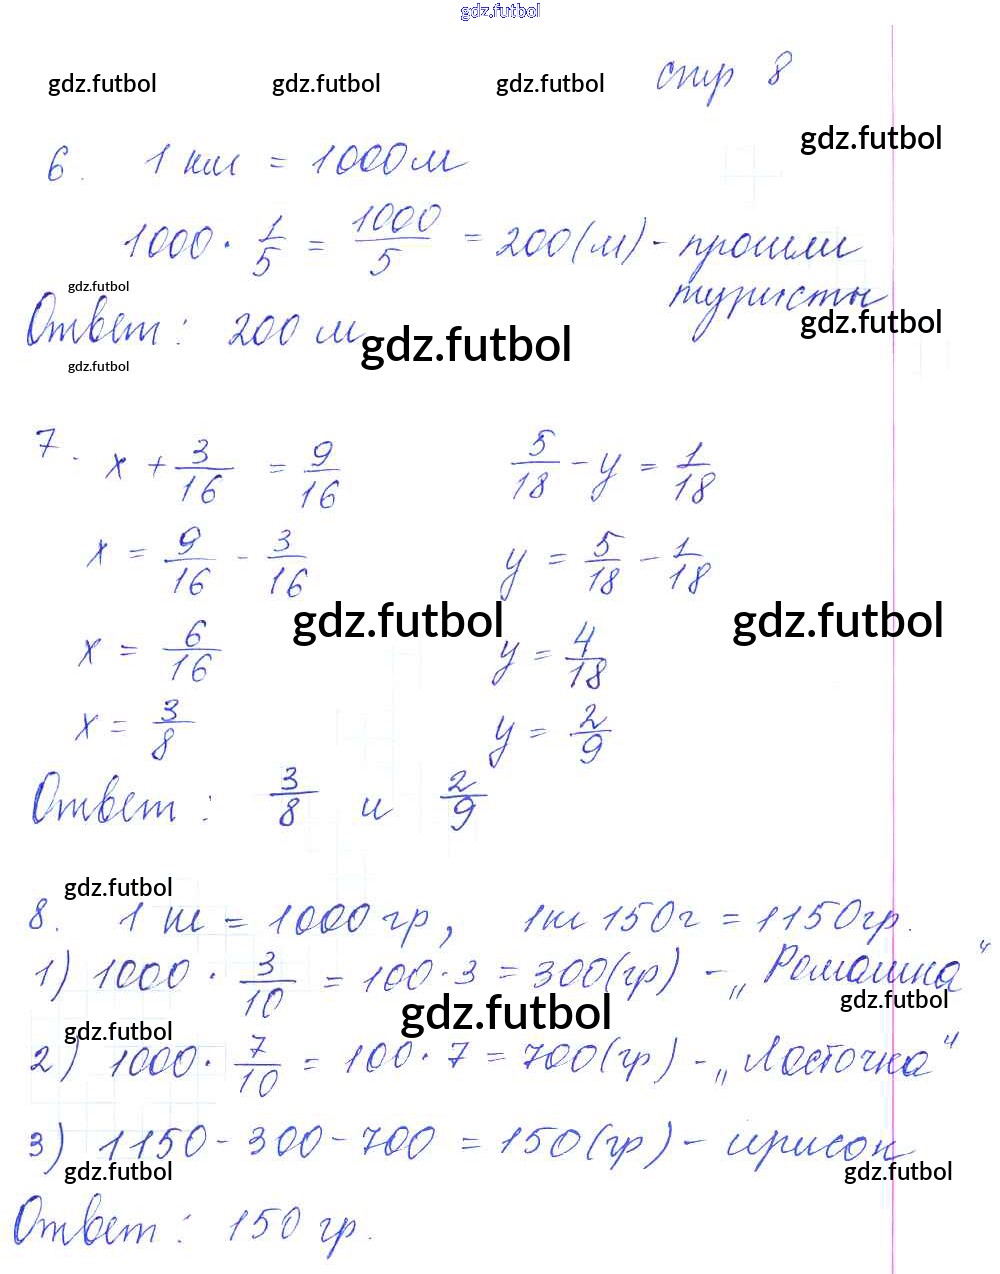 gdz.futbol
gdz.futbol gdz.futbol gdz.futbol стр 8
gdz.futbol
6. 1 км = 1000 м
1000 · 1/5 = 1000/5 = 200 (м) - прошли
туристы
gdz.futbol
Ответ: 200 м
gdz.futbol gdz.futbol
gdz.futbol
7. x + 3/16 = 9/16 5/18 - y = 1/18
x = 9/16 - 3/16 y = 5/18 - 1/18
gdz.futbol gdz.futbol
x = 6/16 y = 4/18
x = 3/8 y = 2/9
Ответ: 3/8 и 2/9
gdz.futbol
8. 1 кг = 1000 гр, 1кг 150г = 1150гр.
1) 1000 · 3/10 = 100 · 3 = 300 (гр) - „Ромашка"
gdz.futbol gdz.futbol
gdz.futbol
2) 1000 · 7/10 = 100 · 7 = 700 (гр) - „Ласточка"
3) 1150 - 300 - 700 = 150 (гр) - ирисок
gdz.futbol gdz.futbol
Ответ: 150 гр.